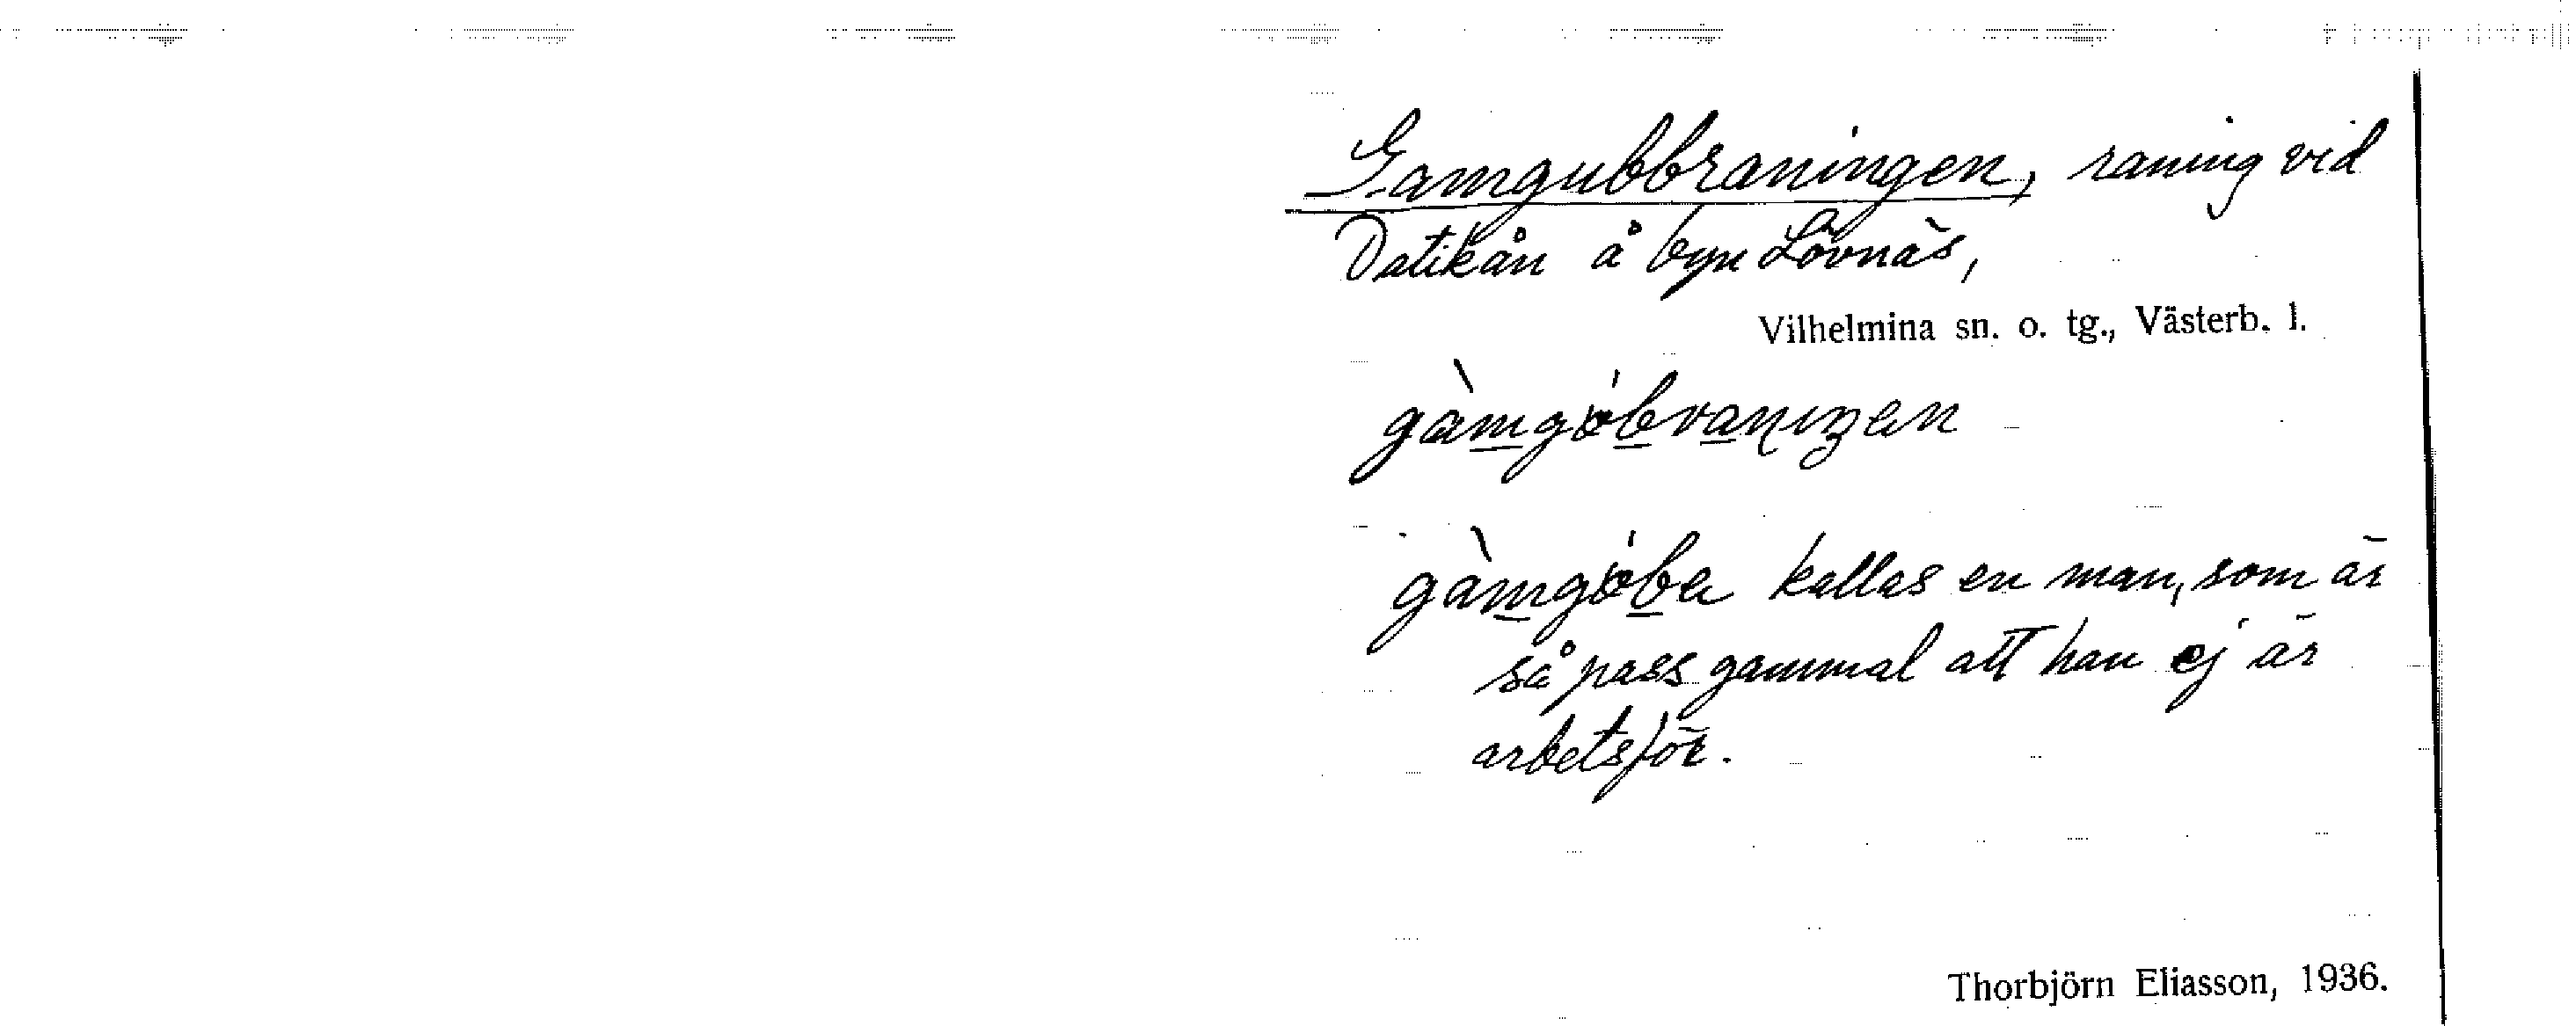 Gamgubbraningen, raning vid
Datikån å byn Lövnäs,
Vilhelmina sn. o. tg., Västerb. l.
gàmgòbranıŋen
gàmgòbe kallas en man, som är
så pass gammal att han ej är
arbetsför.
Thorbjörn Eliasson, 1936.